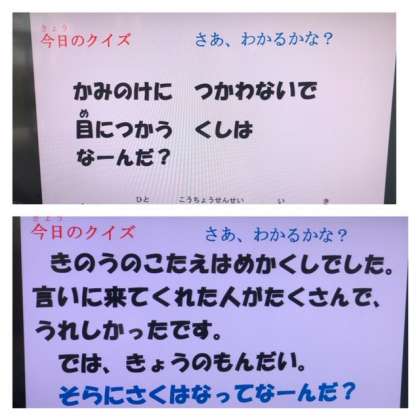 きょう
今日のクイズ　さあ、わかるかな？
かみのけに　つかわないで
め
目につかう　くしは
なーんだ？
ひと　こうちょうせんせい　い　き
きょう
今日のクイズ　さあ、わかるかな？
きのうのこたえはめかくしでした。
言いに来てくれた人がたくさんで、
うれしかったです。
では、きょうのもんだい。
そらにさくはなってなーんだ？